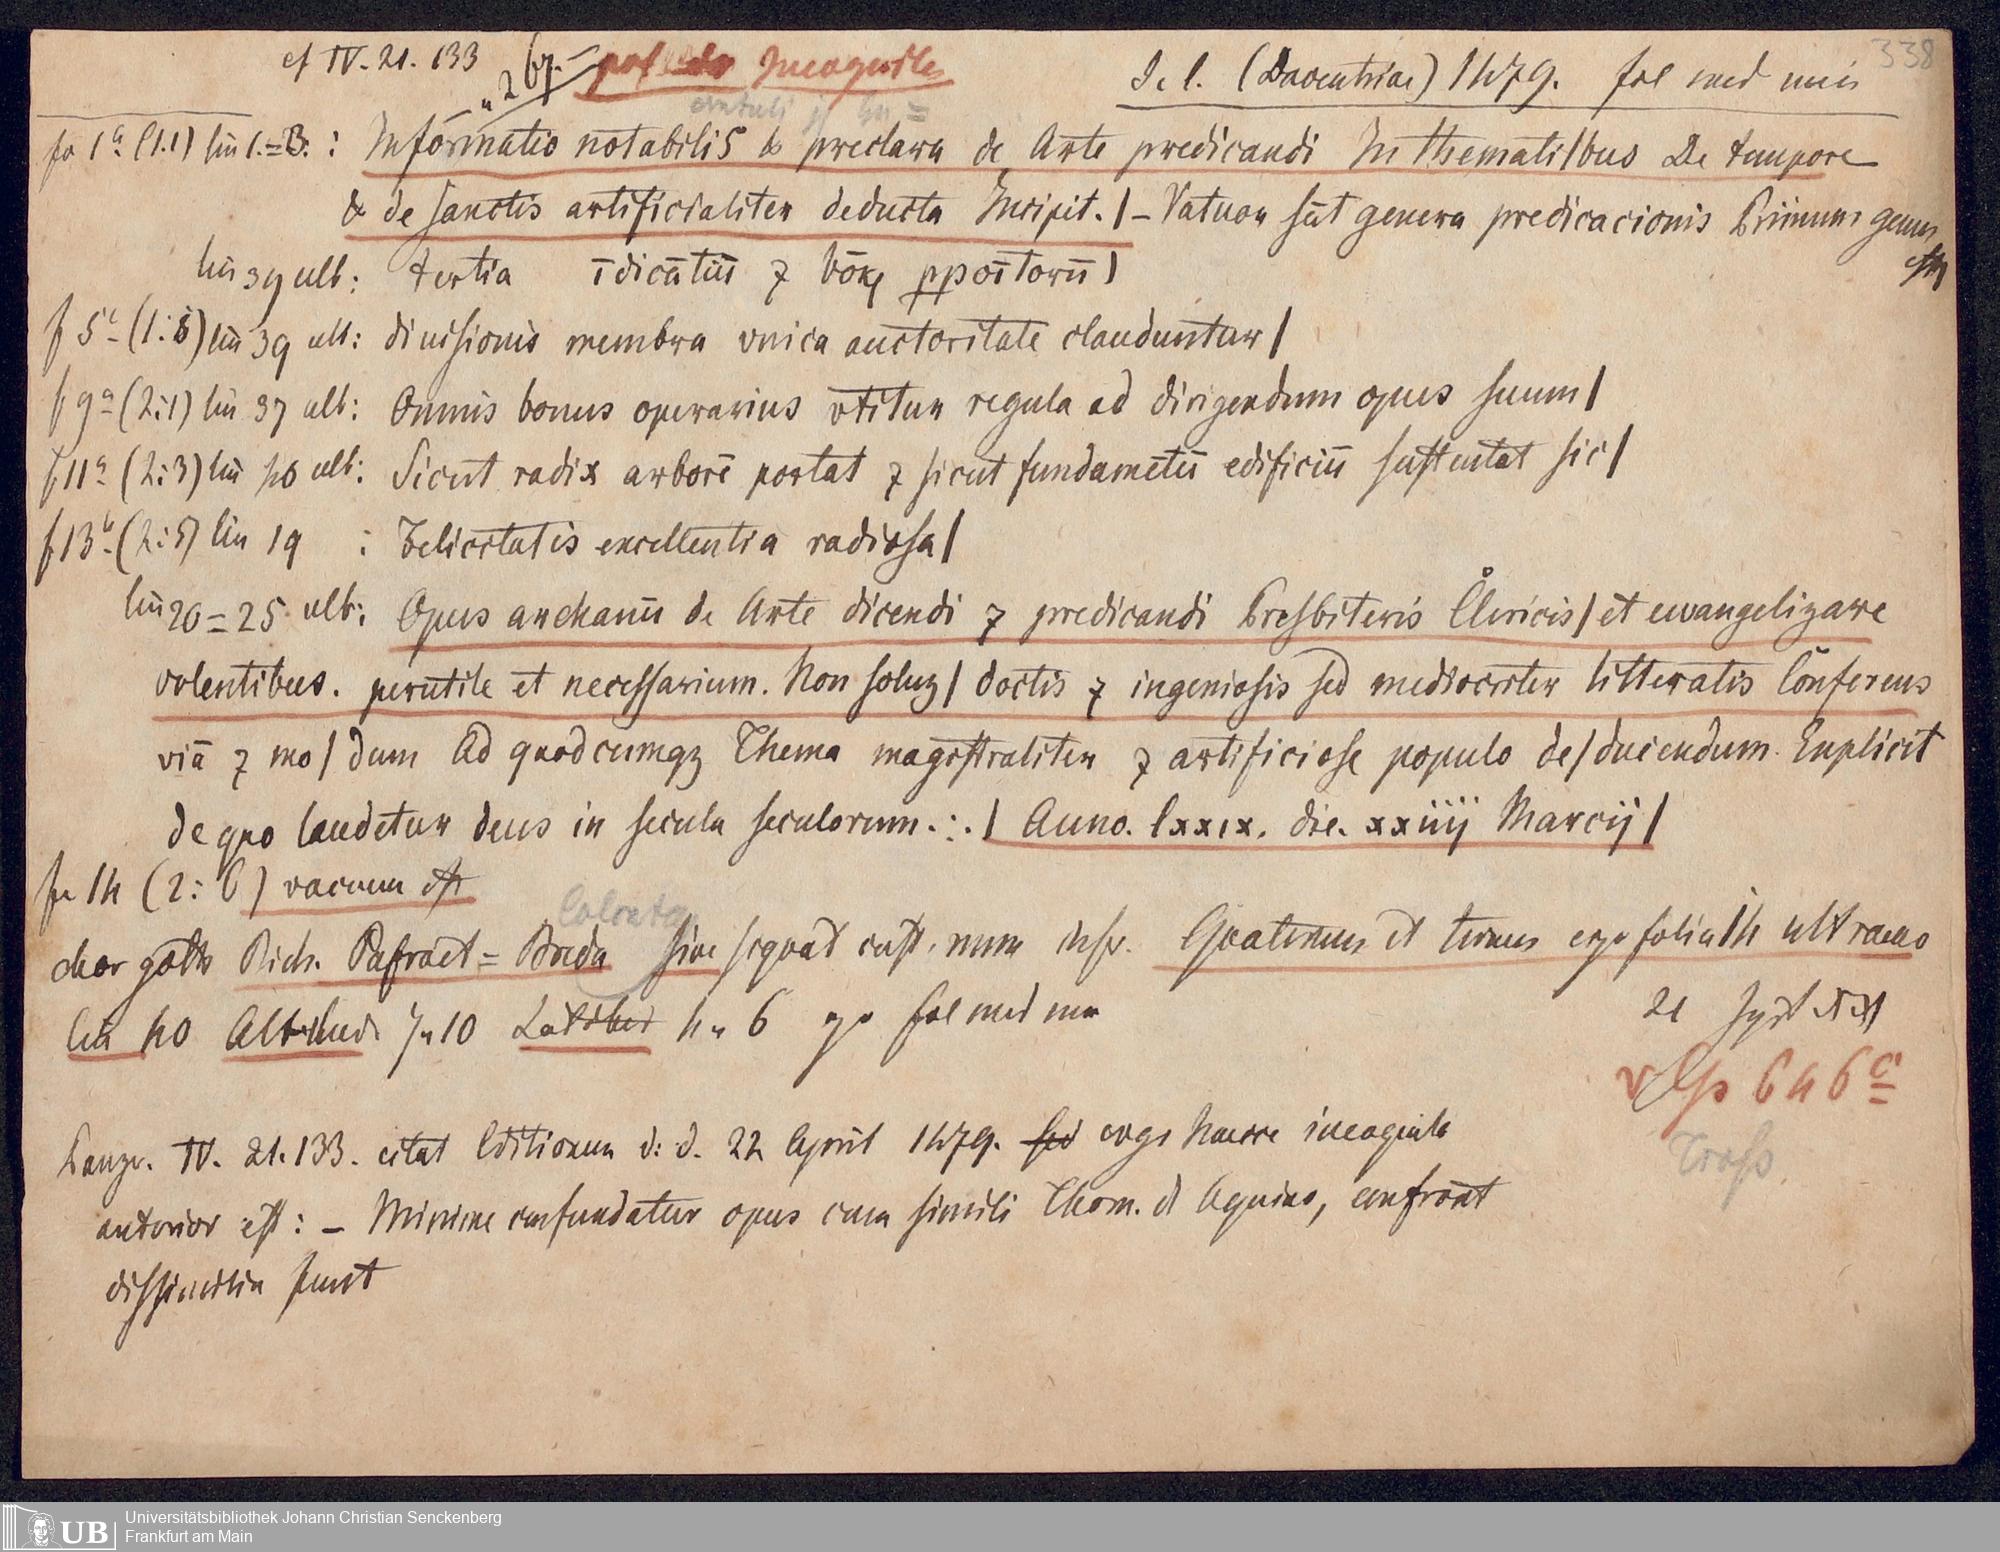 cf IV. 21. 133 n 267. Incognite S. l. (Daventriae) 1479. fol med min 338
fo 1a (1.1) lin 1.=3. : Informatio notabilis & preclara de Arte predicandi In themati/bus De tempore
& de sanctis artificialiter deducta Incipit. / – Vatuor sūt genera predicacionis Primum genus
est
lin 39 ult: tertia īdicātiū ⁊ bōꝝ ppōitorū /
f 5a (1:5) lin 39 ult: diuisionis membra vnica auctoritate clauduntur /
f 9a (2:1) lin 37 ult: Omnis bonus operarius vtitur regula ad dirigendum opus suum /
f 11a (2:3) lin 40 ult: Sicut radix arborē portat ⁊ sicut fundamētū edificiū sustentat sic /
f 13b (2:5) lin 19 : Felicitatis excellentia radiosa /
lin 20=25 ult: Opus archanū de Arte dicendi ⁊ predicandi Presbiteris Clericis / et ewangelizare
volentibus. perutile et necessarium. Non soluz / doctis ⁊ ingeniosis sed mediocriter litteratis Cōferens
viā ⁊ mo / dum Ad quodcumqz Thema magistraliter ⁊ artificiose populo de / ducendum. Explicit
de quo laudetur deus in secula seculorum .:. / Anno. lxxix. die. xxiiij Marcij /
fo 14 (2:6) vacuum est
char goth Rich. Pafraet = Breda sine signat cust. num Quaternus et ternus ergo folia 14 ult vacuo
lin 40 Altitud. 7" 10 Latitud 4" 6 ergo fol med min
21
646a
Tross.
Panzer. IV. 21. 133. citat Editionem d: d. 22 April 1479. ergo haecce incognita
anterior est: – Minime confundatur opus cum simili Thom. d Aquino, confront
dissimilia sunt
UB Universitätsbibliothek Johann Christian Senckenberg
Frankfurt am Main